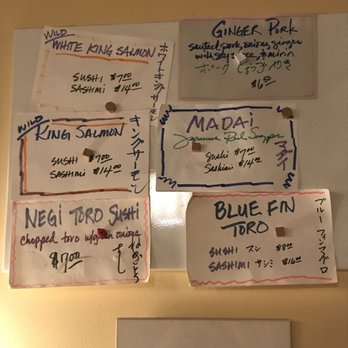 WILD
WHITE KING SALMON
SUSHI $7.00
SASHIMI $14.00
ホワイトキングサーモン
GINGER PORK
sauteed pork, onions, ginger
with soy sauce, & mirin
ポーク しょうが やき
$6.50
WILD
KING SALMON
SUSHI $7.00
SASHIMI $14.00
キングサーモン
MADAI
Japanese Red Snapper
Sushi $7.00
Sashimi $14.00
マダイ
NEGI TORO SUSHI
chopped toro w/green onions
$7.00
BLUE FIN
TORO
SUSHI スシ $8.00
SASHIMI サシミ $16.00
ブルーフィントロ